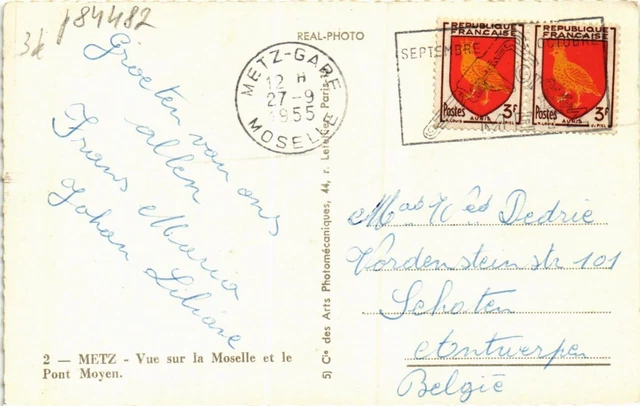 3k
p84482
REAL-PHOTO
METZ-GARE
12 H
27-9
1955
MOSELLE
SEPTEMBRE
OCTOBRE
METZ
REPUBLIQUE
FRANCAISE
Postes 3F
AUNIS
REPUBLIQUE
FRANCAISE
Postes 3F
AUNIS
Groeten van ons
allen
Frans Maria
Johan Liliane
2 — METZ - Vue sur la Moselle et le
Pont Moyen.
5) Cie des Arts Photomécaniques, 44, r. Letellier Paris
Dedrie
Vordensteinstr 101
Schoten
Antwerpen
België